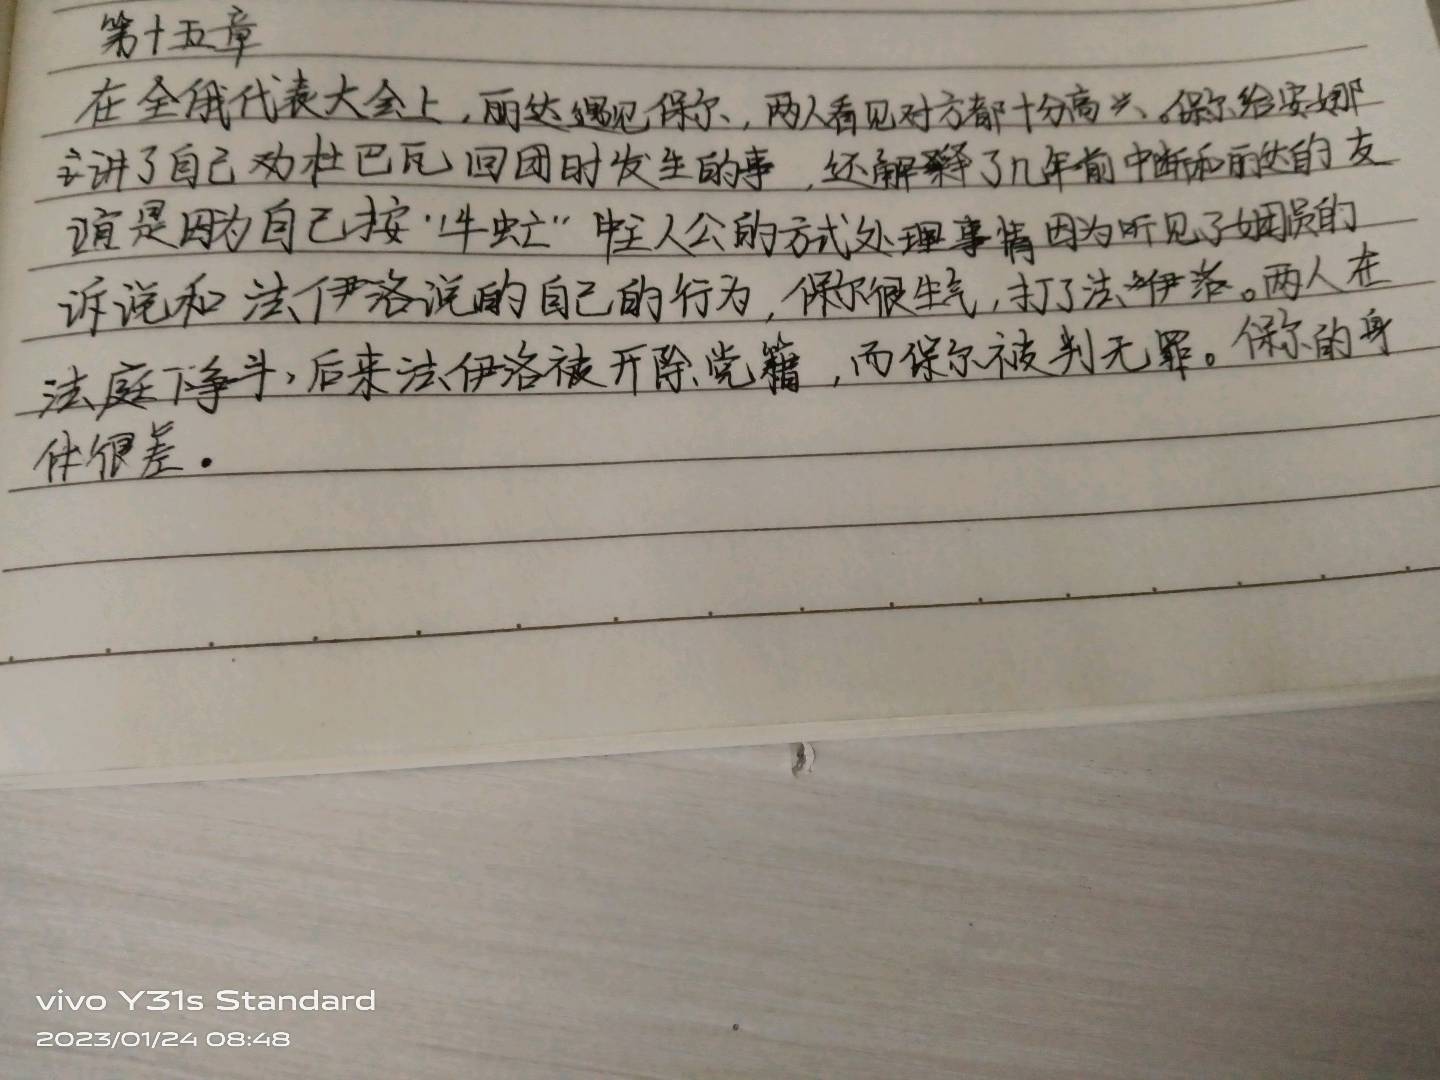 第十五章
在全俄代表大会上，丽达遇见保尔，两人看见对方都十分高兴。保尔给安娜
讲了自己劝杜巴瓦回团时发生的事，还解释了几年前中断和丽达的友
谊是因为自己按“牛虻”中主人公的方式处理事情因为听见了女团员的
诉说和法伊洛说的自己的行为，保尔很生气，打了法伊洛。两人在
法庭下争斗，后来法伊洛被开除党籍，而保尔被判无罪。保尔的身
体很差.
vivo Y31s Standard
2023/01/24 08:48